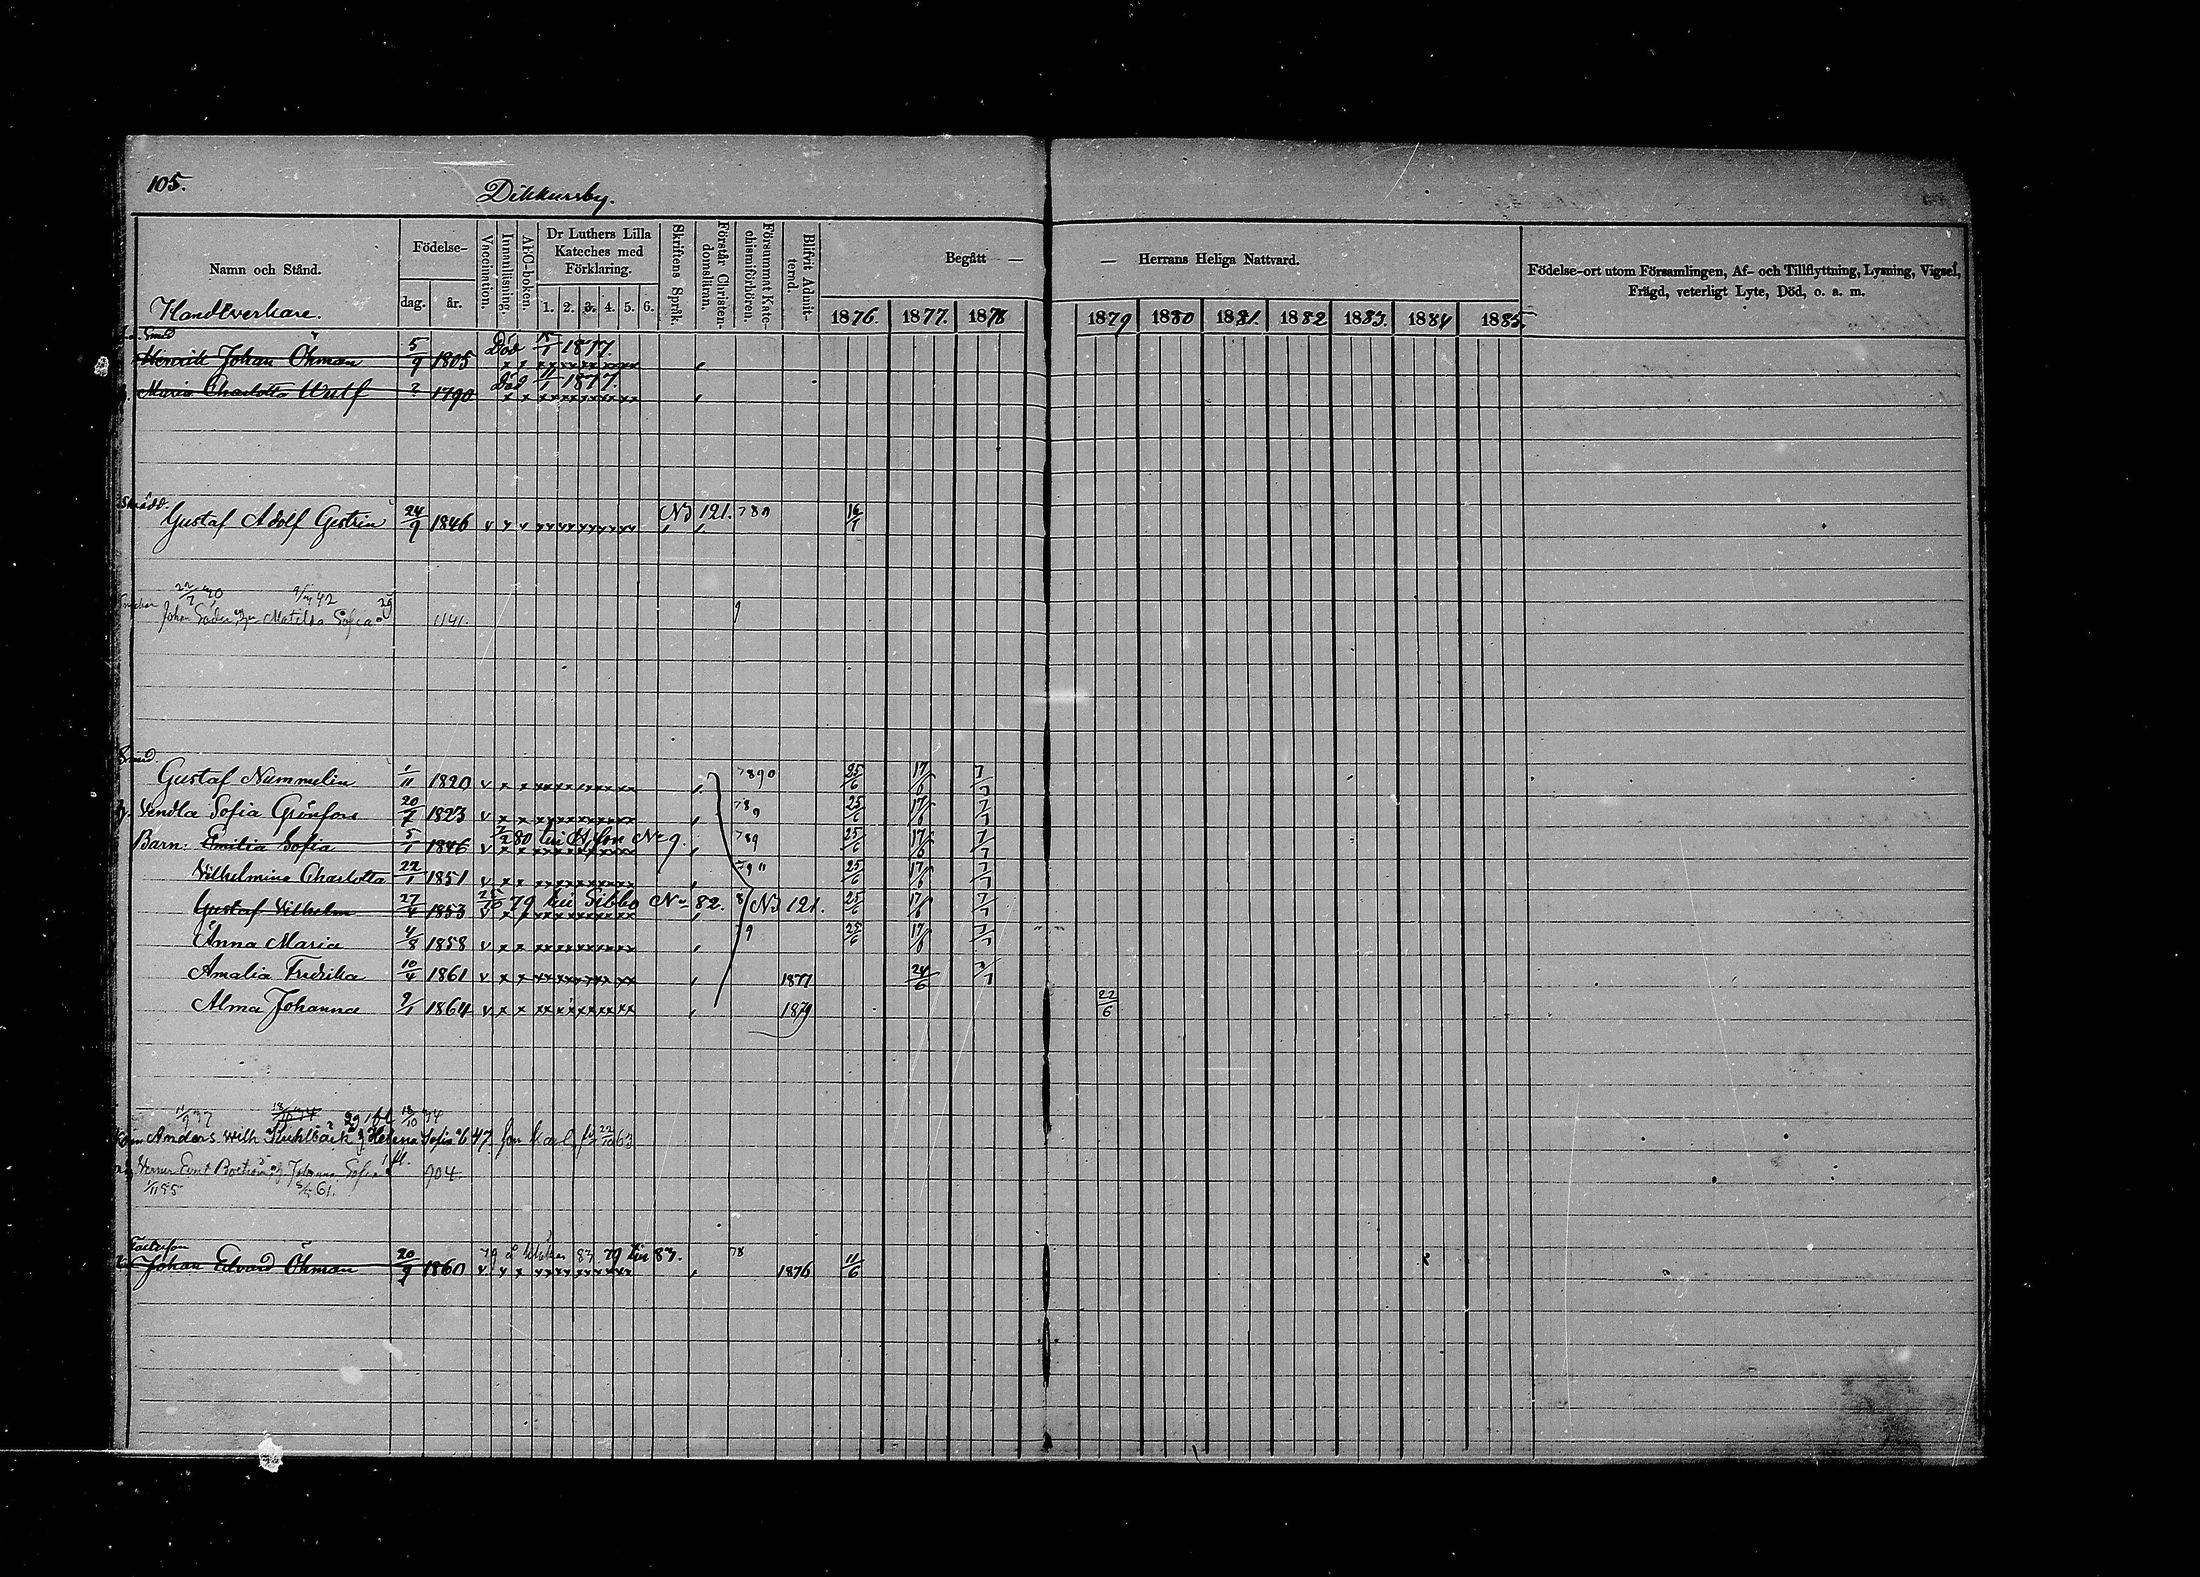 105.
Dikkursby.
Namn och Stånd.
Födelse-
dag.
år.
Vaccination.
Innanläsning.
ABC-boken.
Dr Luthers Lilla Kateches med Förklaring.
1. 2. 3. 4. 5. 6.
Skriftens Språk.
Förstår Christendomsläran.
Försummat Katechismiförhören.
Blifvit Admitterad.
Begått —
— Herrans Heliga Nattvard.
Födelse-ort utom Församlingen, Af- och Tillflyttning, Lysning, Vigsel,
Frägd, veterligt Lyte, Död, o. a. m.
1876. 1877. 1878 1879 1880 1881. 1882 1883. 1884 1885.
Handtverkare.
Smed
Henrik Johan Öhman 5/9 1805 Död 1877.
Maria Charlotta Wulf ? 1790 död 1877.
Gustaf Adolf Gestrin 24/9 1846 No 121. 789 16/1
22/7 40 42 29
Johan Matilda Sofia 1141.
Smed
Gustaf Nummelin 1/11 1820 v 7890 25/6 17/6 7/7
h. Vendla Sofia Grönfors 20/7 1823 v 789 25/6 17/6 7/7
Barn: Emilia Sofia 5/1 1846 v 80 No 9. 789 25/6 17/6 7/7
Vilhelmina Charlotta 22/1 1851 v 25/6 17/6 7/7
Gustaf Vilhelm 27/4 1853 v 25/10 79 till Sibbo No 82. No 121. 25/6 17/6 7/7
Anna Maria 4/8 1858 v 9 25/6 17/6 7/7
Amalia Fredrika 10/4 1861 v 1877 24/6
Alma Johanna 9/1 1864 v 1879 22/6
Anders Wilh Helena Sofia 647
Johanna Sofia 904.
61.
Johan Edvard Öhman 20/9 1860 v 83 79 till 83. 78 1876 11/6